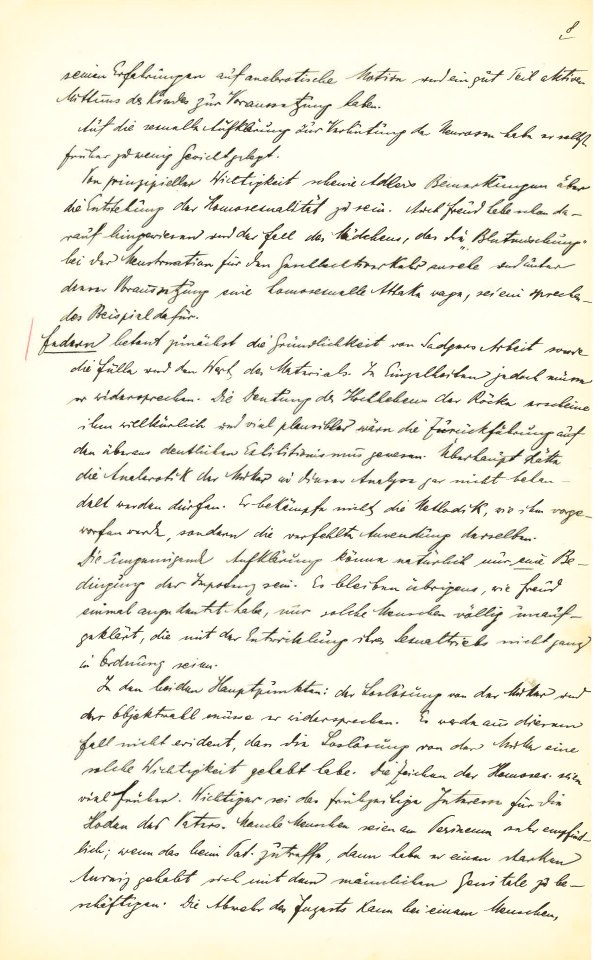 8
seinen Erfahrungen auf analerotische Motive und ein gut Teil aktiven
Mittuns des Kindes zur Voraussetzung haben.
Auf die sexuelle Aufklärung zur Verhütung der Neurosen habe er selbst
früher zu wenig Gewicht gelegt.
Von prinzipieller Wichtigkeit scheine Adlers Bemerkungen über
die Entstehung der Homosexualität zu sein. Auch Freud habe schon da-
rauf hingewiesen und der Fall des Mädchens, das die "Blutmischung"
bei der Menstruation für den Geschlechtsverkehr ansehe und unter
dieser Voraussetzung eine homosexuelle Attake wage, sei ein sprechen-
des Beispiel dafür.
Federn betont zunächst die Gründlichkeit von Sadgers Arbeit sowie
die Fülle und den Wert des Materials. In Einzelheiten jedoch müsse
er widersprechen. Die Deutung des Hochhebens der Röcke erscheine
ihm willkürlich und viel plausibler wäre die Zurückführung auf
den überaus deutlichen Exibitionismus gewesen. Überhaupt hätte
die Analerotik der Mutter in dieser Analyse gar nicht behan-
delt werden dürfen. Er bekämpfe nicht die Methodik, wie ihm vorge-
worfen werde, sondern die verfehlte Anwendung derselben.
Die ungenügende Aufklärung könne natürlich nur eine Be-
dingung der Impotenz sein. Es bleiben übrigens, wie Freud
einmal angedeutet habe, nur solche Menschen völlig unauf-
geklärt, die mit der Entwicklung ihres Sexualtriebs nicht ganz
in Ordnung seien.
In den beiden Hauptpunkten: der Loslösung von der Mutter und
der Objektwahl müsse er widersprechen. Es werde aus diesem
Fall nicht evident, dass die Loslösung von der Mutter eine
solche Wichtigkeit gehabt habe. Die Zeichen der Homosex. seien
viel früher. Wichtiger sei das frühzeitige Interesse für die
Hoden des Vaters. Manche Menschen seien am Perineum sehr empfind-
lich; wenn das beim Pat. zutraffe, dann habe er einen starken
Anreiz gehabt sich mit dem männlichen Genitale zu be-
schäftigen. Die Abwehr des Inzests kann bei einem Menschen,